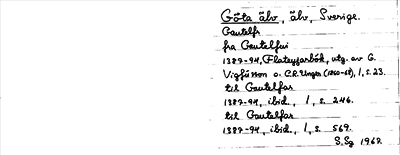 Göta älv, älv, Sverige.
Gautelfr
fra Gautelfui
1387-94, Flateyjarbók, utg. av G.
Vigfússon o. C.R. Unger (1860-68), 1, s. 23.
til Gautelfar
1387-94, ibid., 1, s. 246.
til Gautelfar
1387-94, ibid., 1, s. 569.
S. Sg 1962